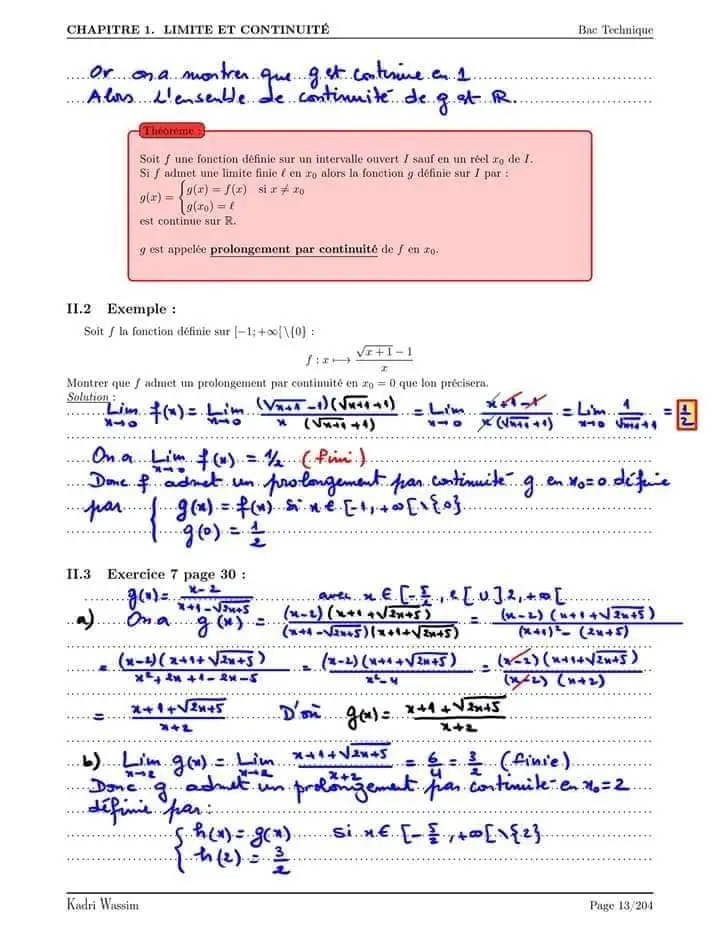 CHAPITRE 1. LIMITE ET CONTINUITÉ Bac Technique
Or on a montrer que g est continue en 1
Alors L'ensemble de continuité de g est ℝ.
Théorème :
Soit f une fonction définie sur un intervalle ouvert I sauf en un réel x₀ de I.
Si f admet une limite finie ℓ en x₀ alors la fonction g définie sur I par :
g(x) = { g(x) = f(x) si x ≠ x₀
g(x₀) = ℓ
est continue sur ℝ.
g est appelée prolongement par continuité de f en x₀.
II.2 Exemple :
Soit f la fonction définie sur [−1; +∞[\{0} :
f : x ⟼ (√(x+1) − 1)/x
Montrer que f admet un prolongement par continuité en x₀ = 0 que lon précisera.
Solution :
Lim x→0 f(x) = Lim x→0 (√(x+1) −1)(√(x+1) +1) / x (√(x+1) +1) = Lim x→0 (x+1−1) / x(√(x+1) +1) = Lim x→0 1/(√(x+1) +1) = 1/2
On a Lim x→0 f(x) = 1/2 (fini)
Donc f admet un prolongement par continuité g en x₀=0 définie
par { g(x) = f(x) si x ∈ [-1, +∞[ \ {0}
g(0) = 1/2
II.3 Exercice 7 page 30 :
g(x) = (x−2)/(x+1−√(2x+5)) avec x ∈ [-5/2, 2[ ∪ ]2, +∞[
a) On a g(x) = (x−2)(x+1+√(2x+5)) / (x+1−√(2x+5))(x+1+√(2x+5)) = (x−2)(x+1+√(2x+5)) / ((x+1)² − (2x+5))
= (x−2)(x+1+√(2x+5)) / (x²+2x+1−2x−5) = (x−2)(x+1+√(2x+5)) / (x²−4) = (x−2)(x+1+√(2x+5)) / (x−2)(x+2)
= (x+1+√(2x+5))/(x+2) D'où g(x) = (x+1+√(2x+5))/(x+2)
b) Lim x→2 g(x) = Lim x→2 (x+1+√(2x+5))/(x+2) = 6/4 = 3/2 (finie)
Donc g admet un prolongement par continuité en x₀=2
définie par:
{ h(x) = g(x) si x ∈ [-5/2, +∞[ \ {2}
h(2) = 3/2
Kadri Wassim Page 13/204